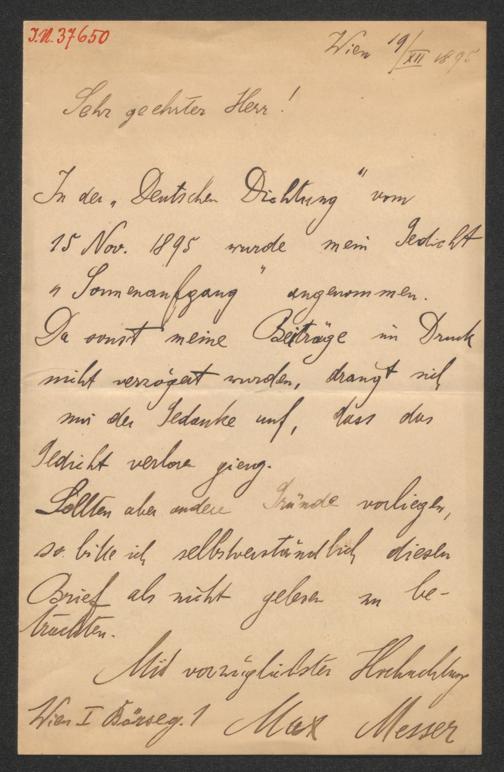 I.N. 37650
Wien 19/XII 1895
Sehr geehrter Herr!
In der „Deutschen Dichtung" vom
15 Nov. 1895 wurde mein Gedicht
„Sonnenaufgang" angenommen.
Da sonst meine Beiträge im Druck
nicht verzögert wurden, drangt sich
mir der Gedanke auf, dass das
Gedicht verloren gieng.
Sollten aber andere Gründe vorliegen,
so bitte ich selbstverständlich diesen
Brief als nicht gelesen zu be-
trachten.
Mit vorzüglichster Hochachtung
Wien I Börseg. 1 Max Messer